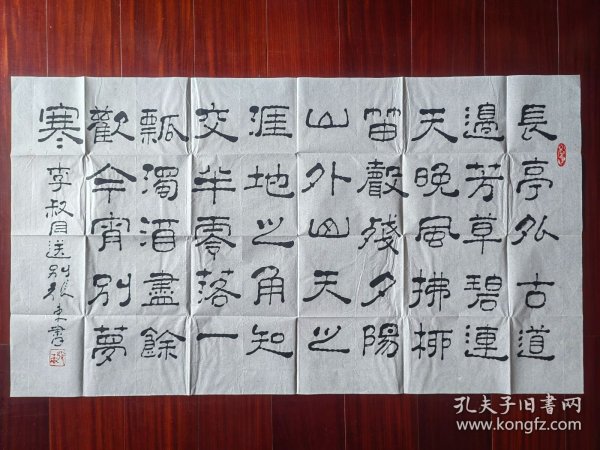 長亭外古道
邊芳草碧連
天晚風拂柳
笛聲殘夕陽
山外山天之
涯地之角知
交半零落一
瓢濁酒盡餘
歡今宵別夢
寒
李叔同送别张东書
孔夫子旧书网
www.kongfz.com